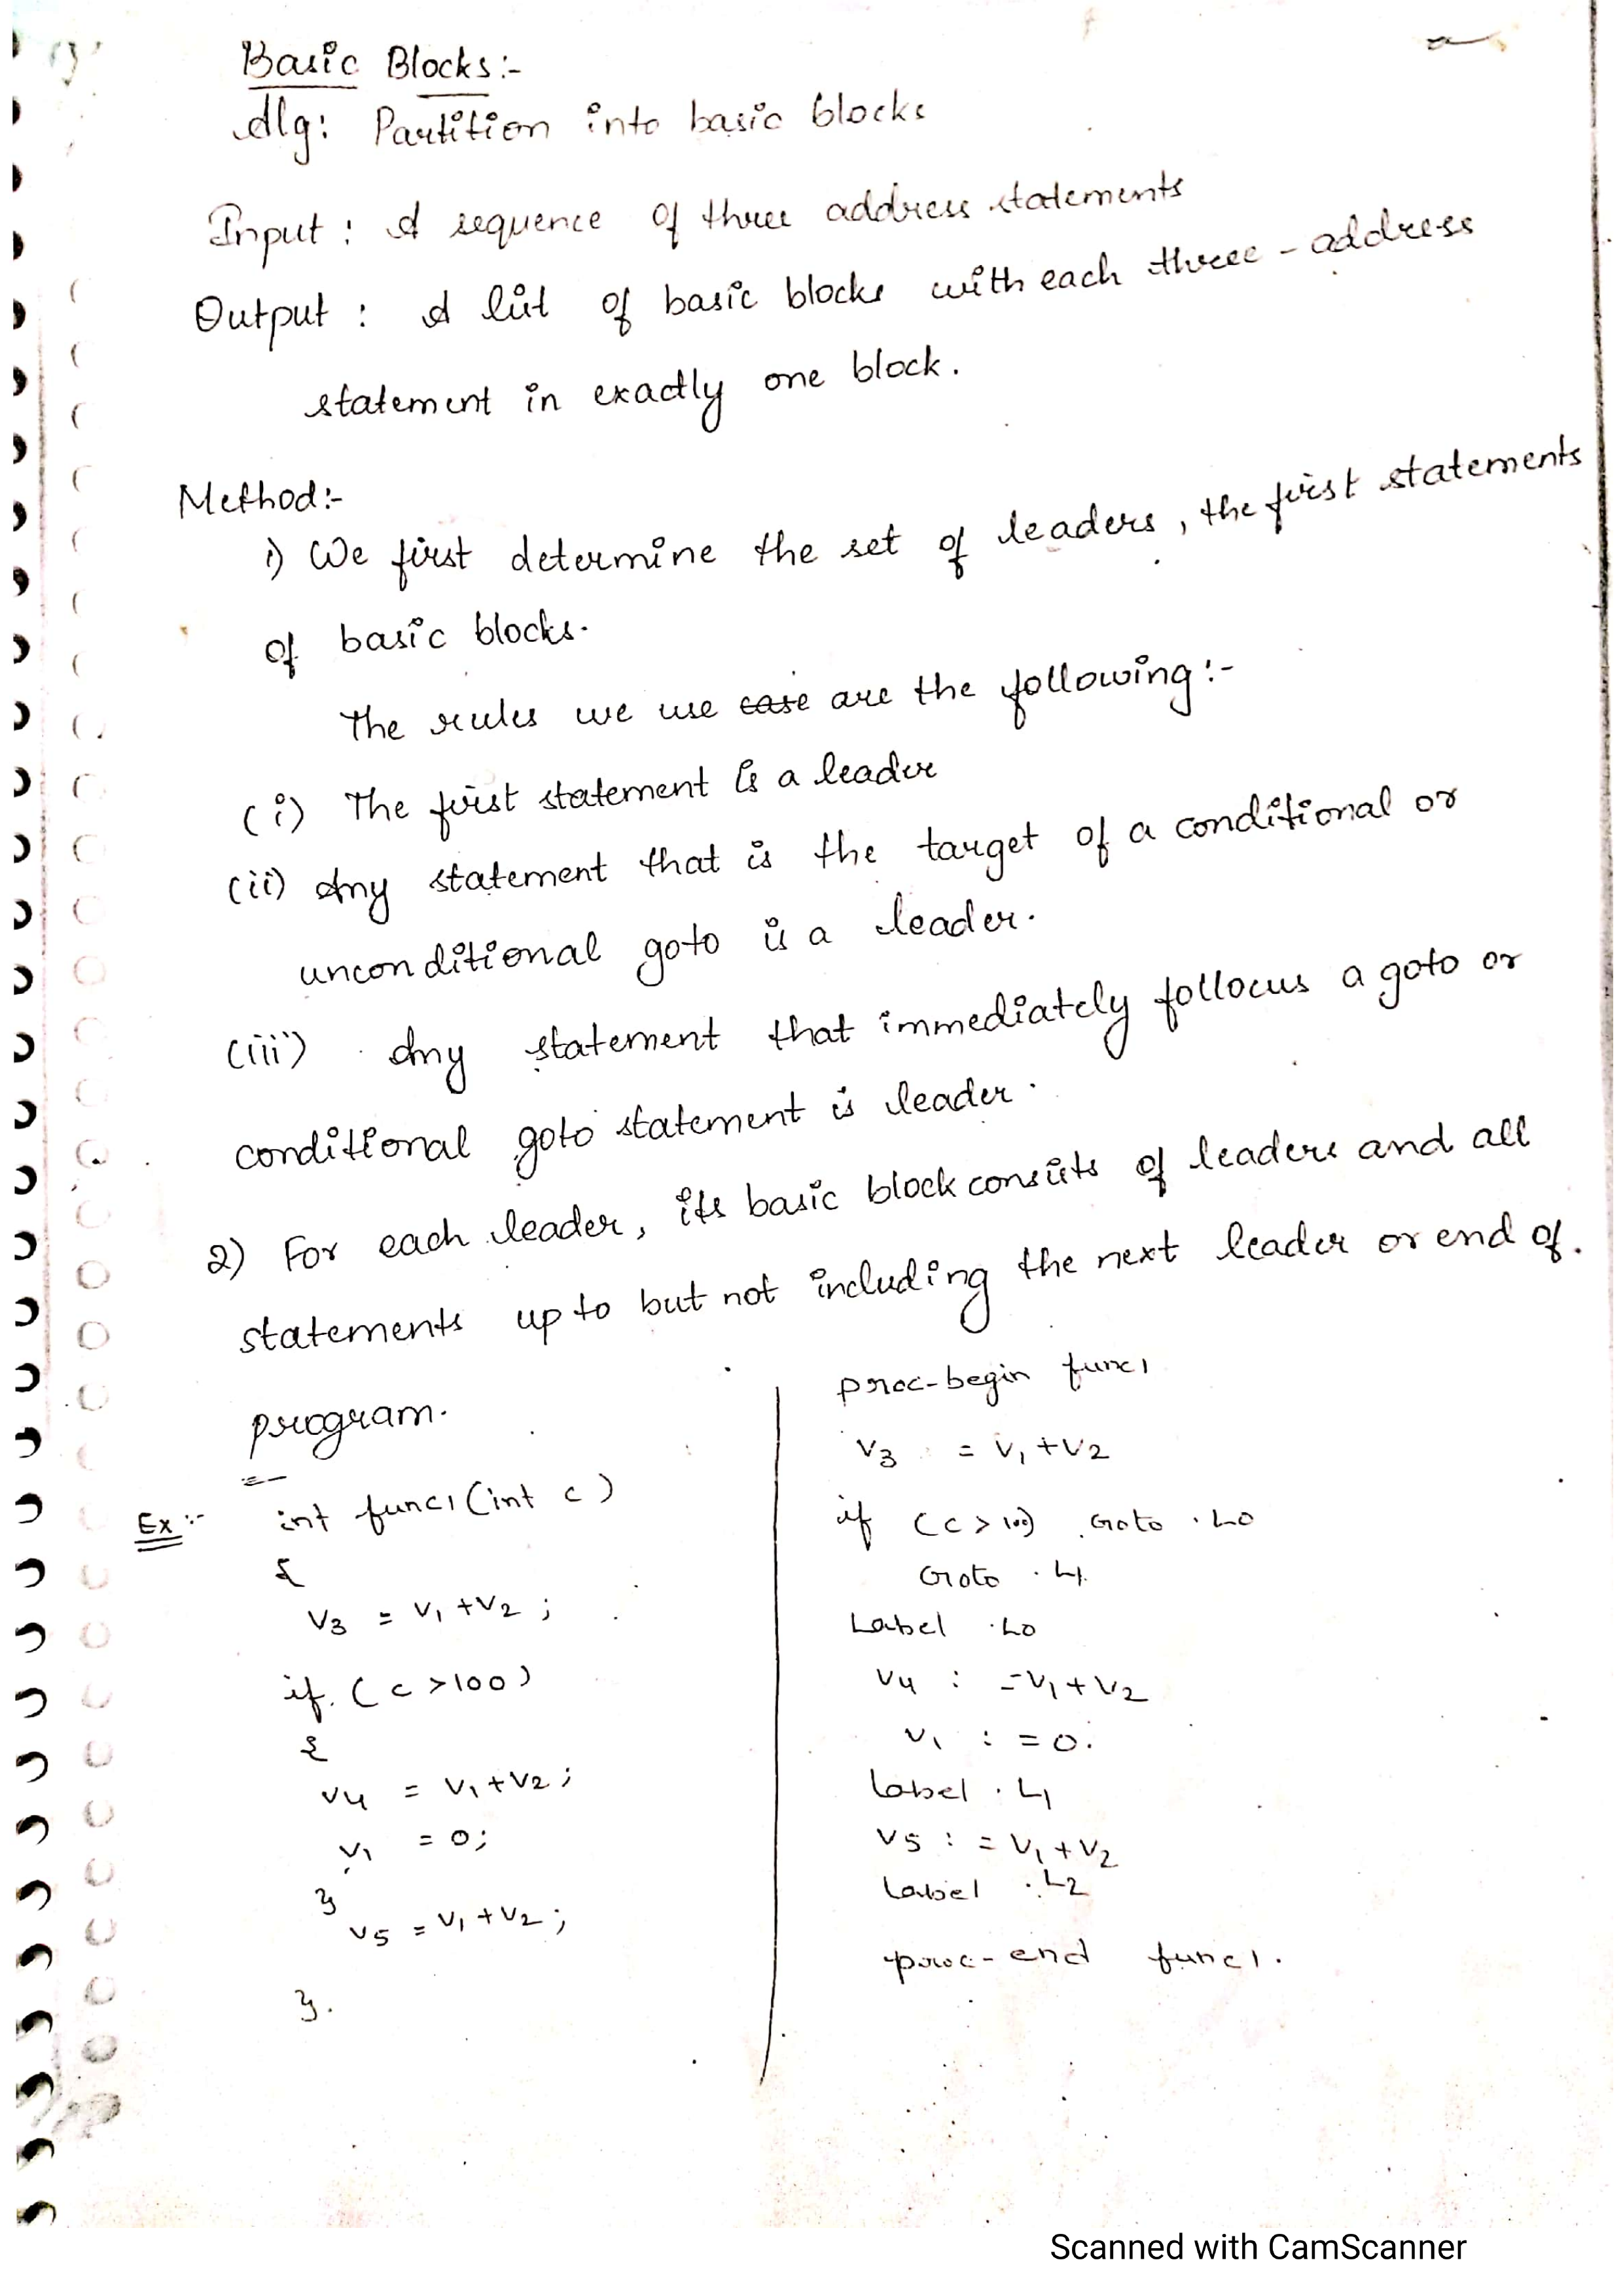 Basic Blocks :-
Alg: Partition into basic blocks
Input : A sequence of three address statements
Output : A list of basic blocks with each three - address
statement in exactly one block.
Method:-
1) We first determine the set of leaders, the first statements
of basic blocks.
The rules we use case are the following :-
(i) The first statement is a leader
(ii) Any statement that is the target of a conditional or
unconditional goto is a leader.
(iii) Any statement that immediately follows a goto or
conditional goto statement is leader.
2) For each leader, its basic block consists of leaders and all
statements up to but not including the next leader or end of.
program.
Ex :-
int func1(int c)
{
v3 = v1 + v2 ;
if. (c > 100)
{
v4 = v1 + v2 ;
v1 = 0;
}
v5 = v1 + v2 ;
}.
proc-begin func1
v3 = v1 + v2
if (c > 100) Goto .L0
Goto .L1
Label .L0
v4 : = v1 + v2
v1 : = 0.
Label .L1
v5 : = v1 + v2
Label .L2
proc-end func1.
Scanned with CamScanner